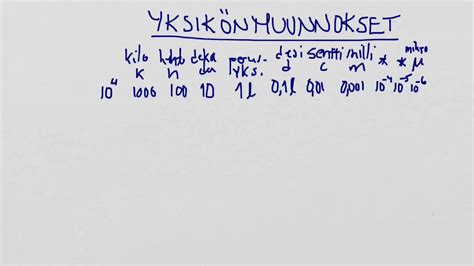 YKSIKÖNMUUNNOKSET
kilo hehto deka perus- desi sentti milli mikro
k h da yks. d c m * * μ
10⁴ 1000 100 10 1 l 0,1 l 0,01 0,001 10⁻⁴ 10⁻⁵ 10⁻⁶